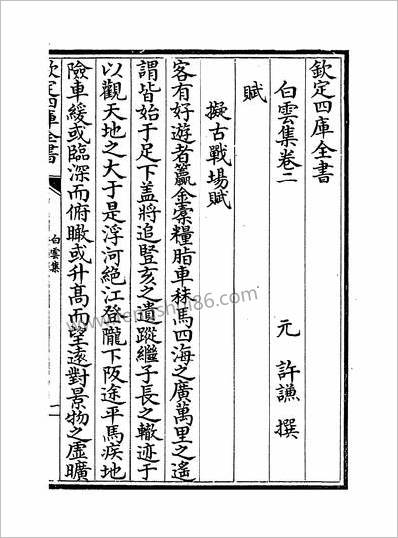 欽定四庫全書
白雲集卷二
元 許謙 撰
賦
擬古戰場賦
客有好遊者籯金橐糧脂車秣馬四海之廣萬里之遙
謂皆始于足下盖將追豎亥之遺蹤繼子長之轍迹于
以觀天地之大于是浮河絶江登隴下阪途平馬疾地
險車緩或臨深而俯瞰或升髙而望遠對景物之虛曠
欽定四庫全書
白雲集
一